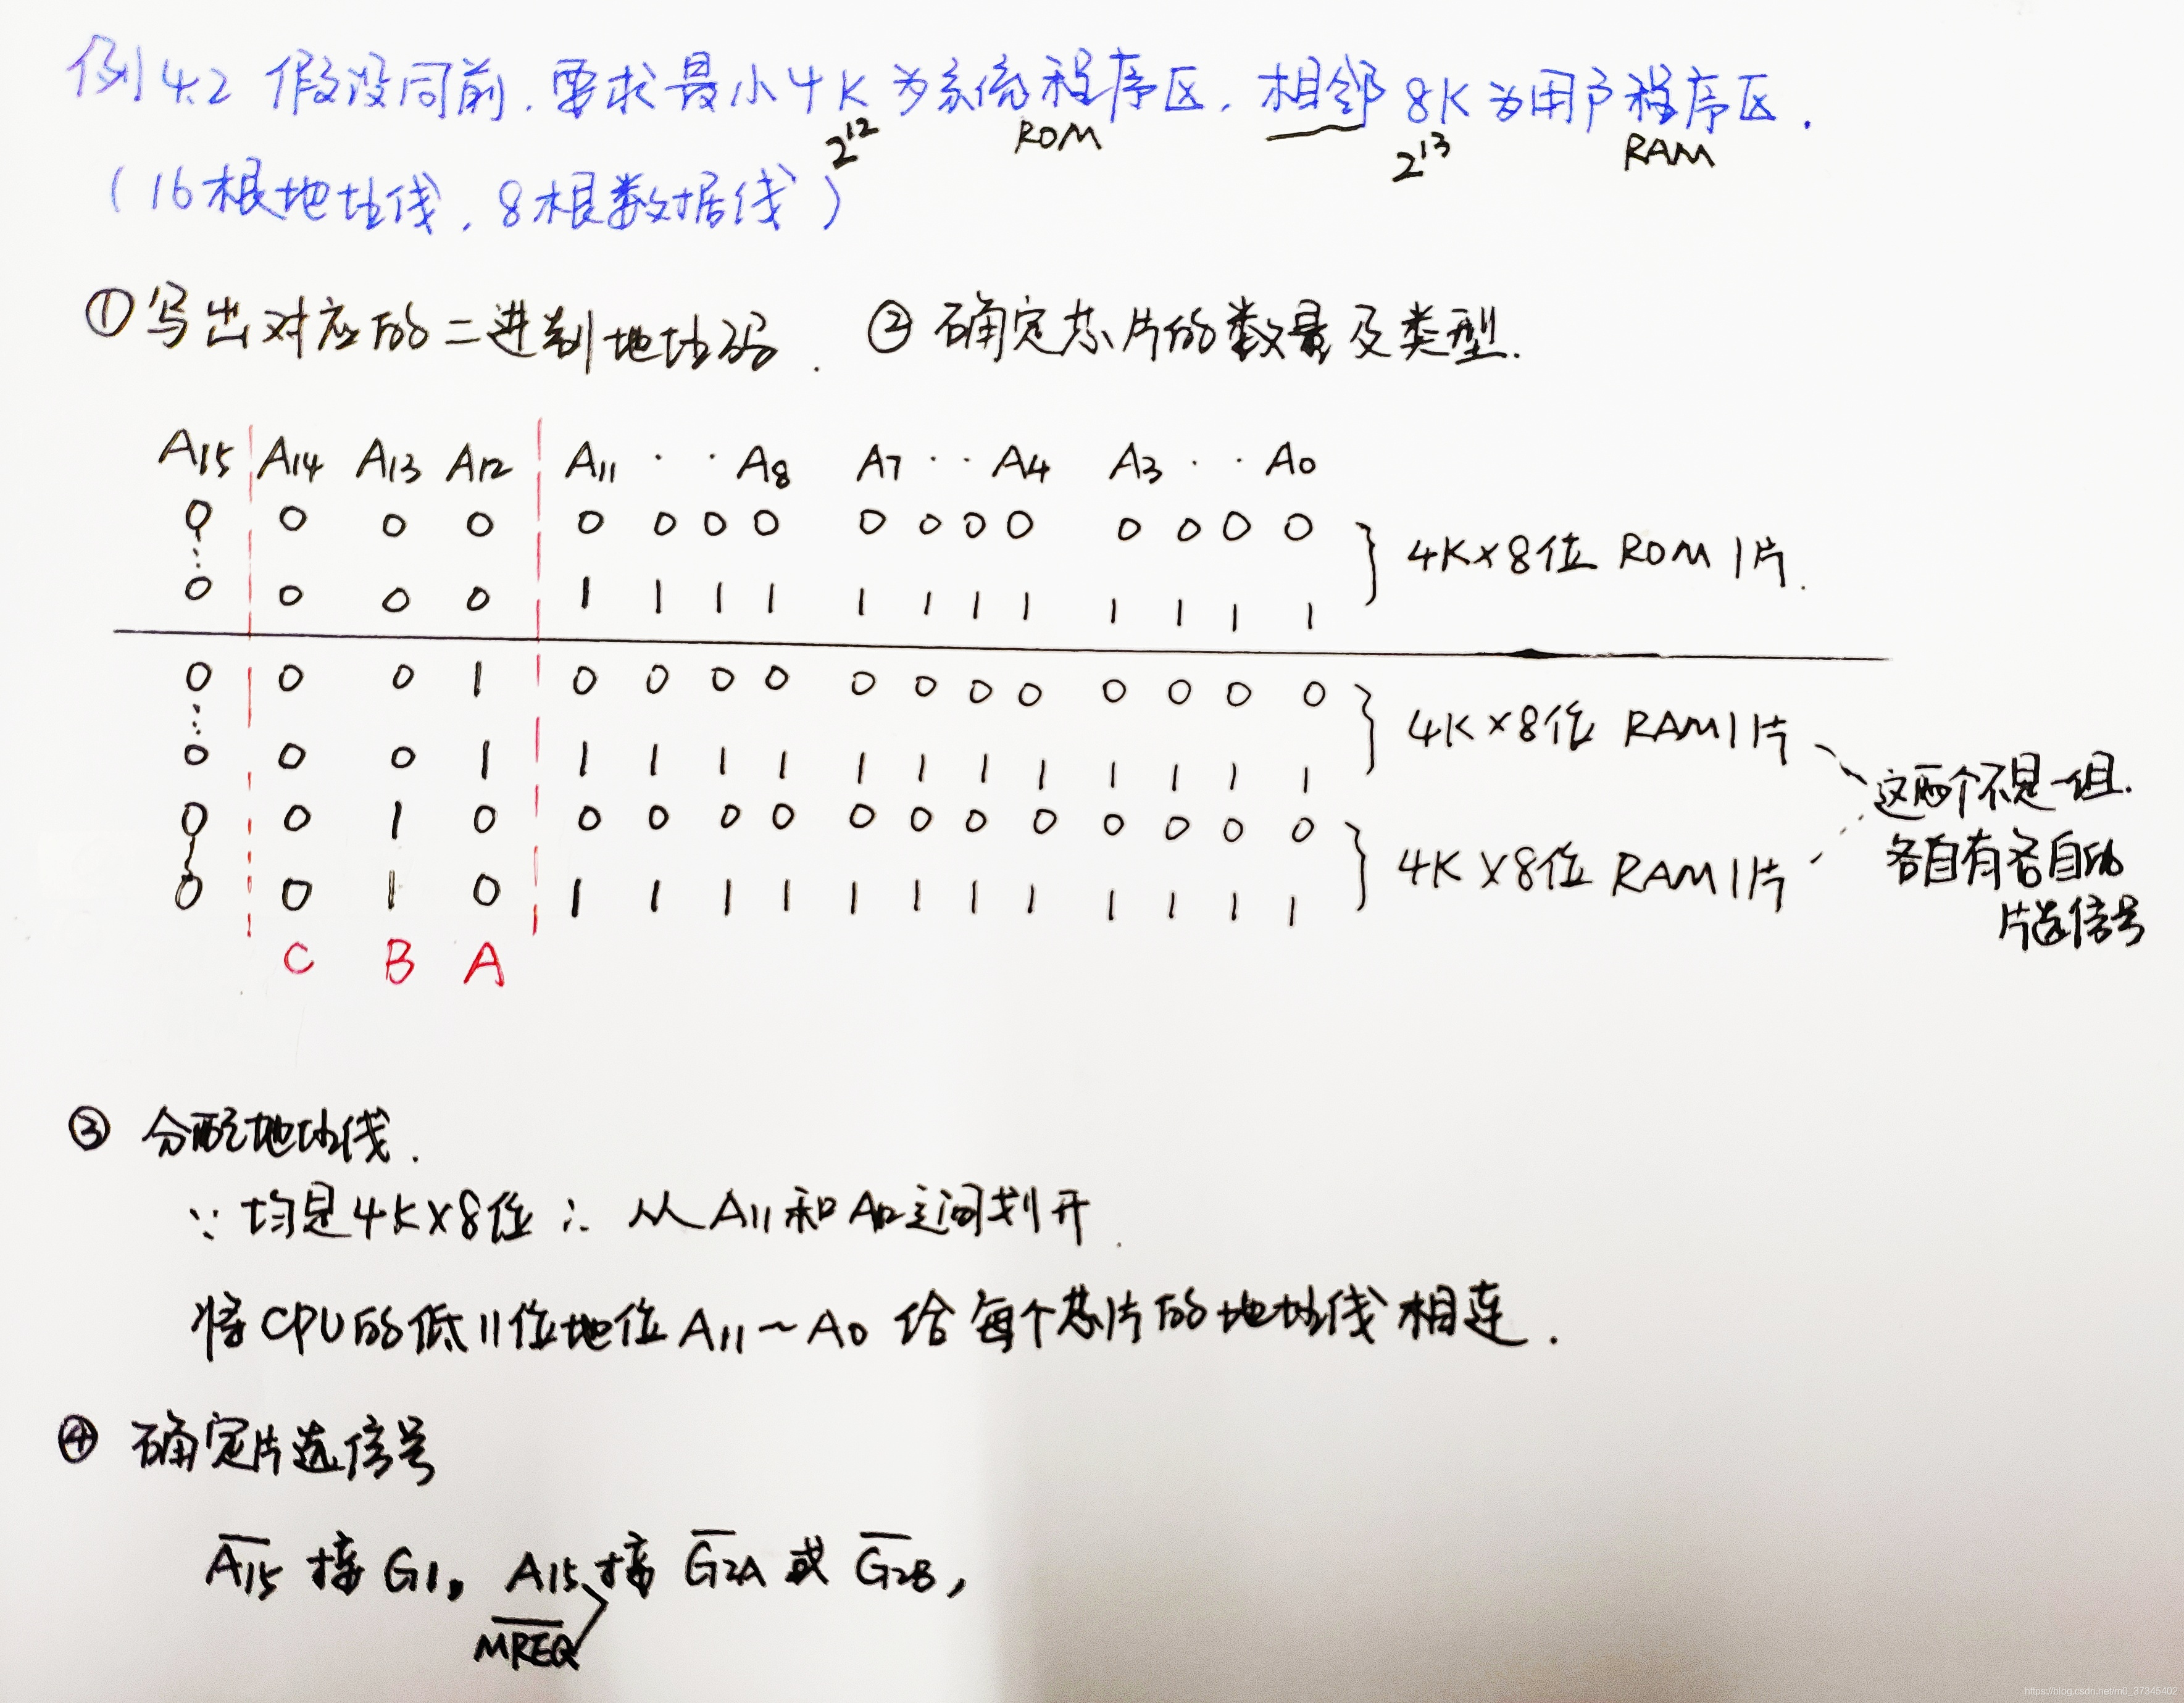 例4.2 假设同前.要求最小4K为系统程序区,相邻8K为用户程序区.
2^12 ROM 2^13 RAM
(16根地址线,8根数据线)
①写出对应的二进制地址码. ②确定芯片的数量及类型.
A15 A14 A13 A12 A11 ·· A8 A7 ·· A4 A3 ·· A0
0 0 0 0 0 0 0 0 0 0 0 0 0 0 0 0
0 0 0 0 1 1 1 1 1 1 1 1 1 1 1 1 } 4K×8位 ROM 1片.
0 0 0 1 0 0 0 0 0 0 0 0 0 0 0 0
0 0 0 1 1 1 1 1 1 1 1 1 1 1 1 1 } 4K×8位 RAM1片
0 0 1 0 0 0 0 0 0 0 0 0 0 0 0 0
0 0 1 0 1 1 1 1 1 1 1 1 1 1 1 1 } 4K×8位 RAM1片
这两个不是一组.
各自有各自的
片选信号
C B A
③ 分配地址线.
∵ 均是4K×8位 ∴ 从A11和A12之间划开.
将CPU的低11位地位A11~A0 给每个芯片的地址线相连.
④ 确定片选信号
A̅1̅5̅ 接 G1, A15 接 G̅2̅A̅ 或 G̅2̅B̅,
M̅R̅E̅Q̅
https://blog.csdn.net/m0_37345402